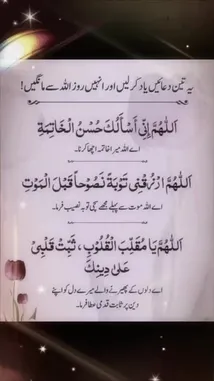 یہ تین دعائیں یاد کرلیں اور انہیں روز اللہ سے مانگیں!
اَللّٰهُمَّ اِنِّي أَسْأَلُكَ حُسْنَ الْخَاتِمَةِ
اے اللہ میرا خاتمہ اچھا کرنا۔
اَللّٰهُمَّ ارْزُقْنِي تَوْبَةً نَصُوْحاً قَبْلَ الْمَوْتِ
اے اللہ موت سے پہلے مجھے سچی توبہ نصیب فرما۔
اَللّٰهُمَّ يَا مُقَلِّبَ الْقُلُوْبِ، ثَبِّتْ قَلْبِيْ
عَلىٰ دِيْنِكَ
اے دلوں کے پھیرنے والے میرے دل کو اپنے
دین پر ثابت قدمی عطا فرما۔